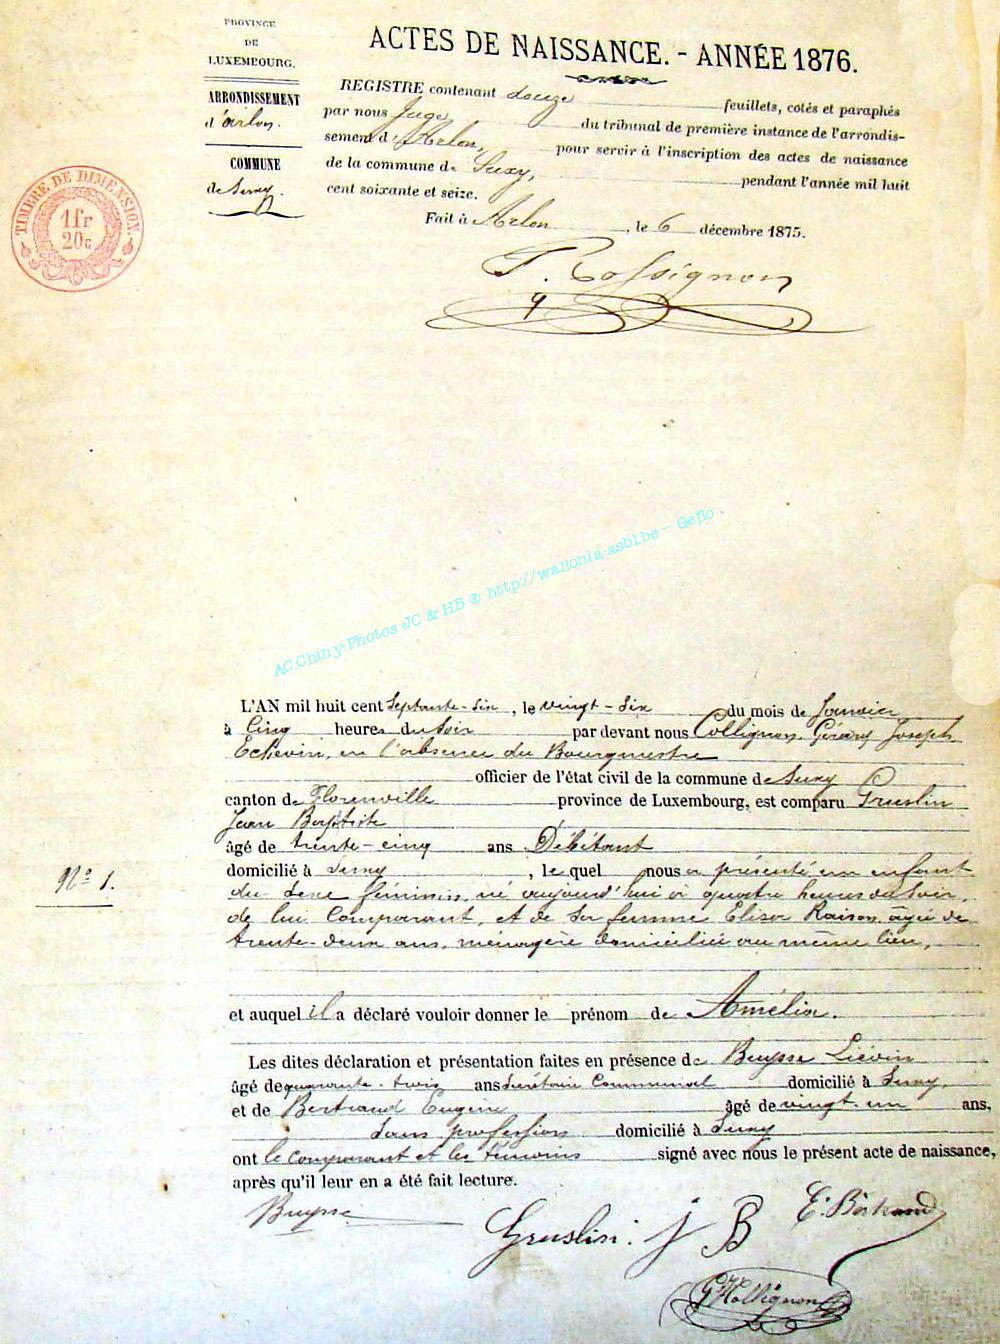 PROVINCE
DE
LUXEMBOURG.
ARRONDISSEMENT
d'Arlon.
COMMUNE
de Suxy.
TIMBRE DE DIMENSION.
1fr
20c
ACTES DE NAISSANCE. - ANNÉE 1876.
REGISTRE contenant douze feuillets, cotés et paraphés
par nous Juge du tribunal de première instance de l'arrondis-
sement d'Arlon, pour servir à l'inscription des actes de naissance
de la commune de Suxy, pendant l'année mil huit
cent soixante et seize.
Fait à Arlon, le 6 décembre 1875.
Rossignon
AC.Chiny-Photos JC & HB ® http://wallonia-asbl.be - Geflo
N° 1.
L'AN mil huit cent septante-six, le vingt-six du mois de Janvier
à Cinq heures du Soir par devant nous Collignon, Gérard Joseph
Echevin, en l'absence du Bourgmestre
officier de l'état civil de la commune de Suxy
canton de Florenville province de Luxembourg, est comparu Gruslin
Jean Baptiste
âgé de trente-cinq ans Débitant
domicilié à Suxy, le quel nous a présenté un enfant
du sexe féminin, né aujourd'hui à quatre heures du soir,
de lui Comparant, et de sa femme Elisa Raison, âgée de
trente-deux ans, ménagère domiciliée au même lieu,
et auquel il a déclaré vouloir donner le prénom de Amélia.
Les dites déclaration et présentation faites en présence de Buysse Liévin
âgé de quarante-trois ans secrétaire Communal domicilié à Suxy,
et de Bertrand Eugène âgé de vingt-un ans,
sans profession domicilié à Suxy
ont le comparant et les témoins signé avec nous le présent acte de naissance,
après qu'il leur en a été fait lecture.
Buysse
Gruslin J B
E. Bertrand
G J Collignon